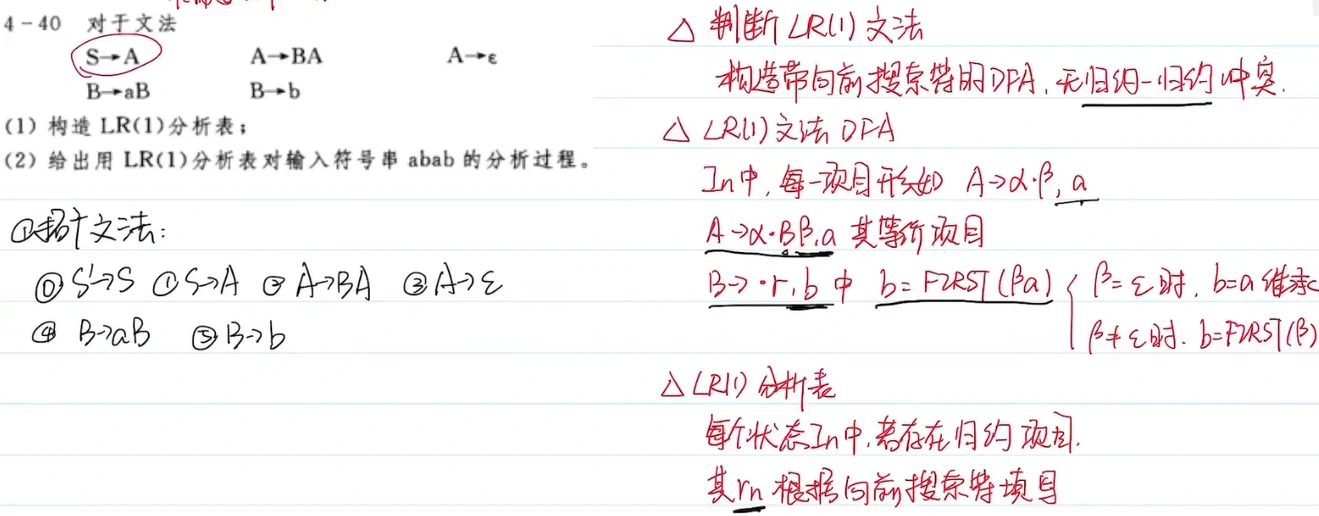 4-40 对于文法
S→A A→BA A→ε
B→aB B→b
(1) 构造 LR(1)分析表；
(2) 给出用 LR(1)分析表对输入符号串 abab 的分析过程。
①拓广文法:
⓪S'→S ①S→A ②A→BA ③A→ε
④ B→aB ⑤B→b
△ 判断 LR(1) 文法
构造带向前搜索符的DFA, 无归约-归约冲突.
△ LR(1)文法 DFA
In中, 每一项目形如 A→α·β, a
A→α·Bβ,a 其等价项目
B→·r,b 中 b=FIRST(βa) { β=ε时, b=a 继承
β≠ε时. b=FIRST(β)
△ LR(1) 分析表
每个状态In中,若存在归约项目.
其rn 根据向前搜索符填写